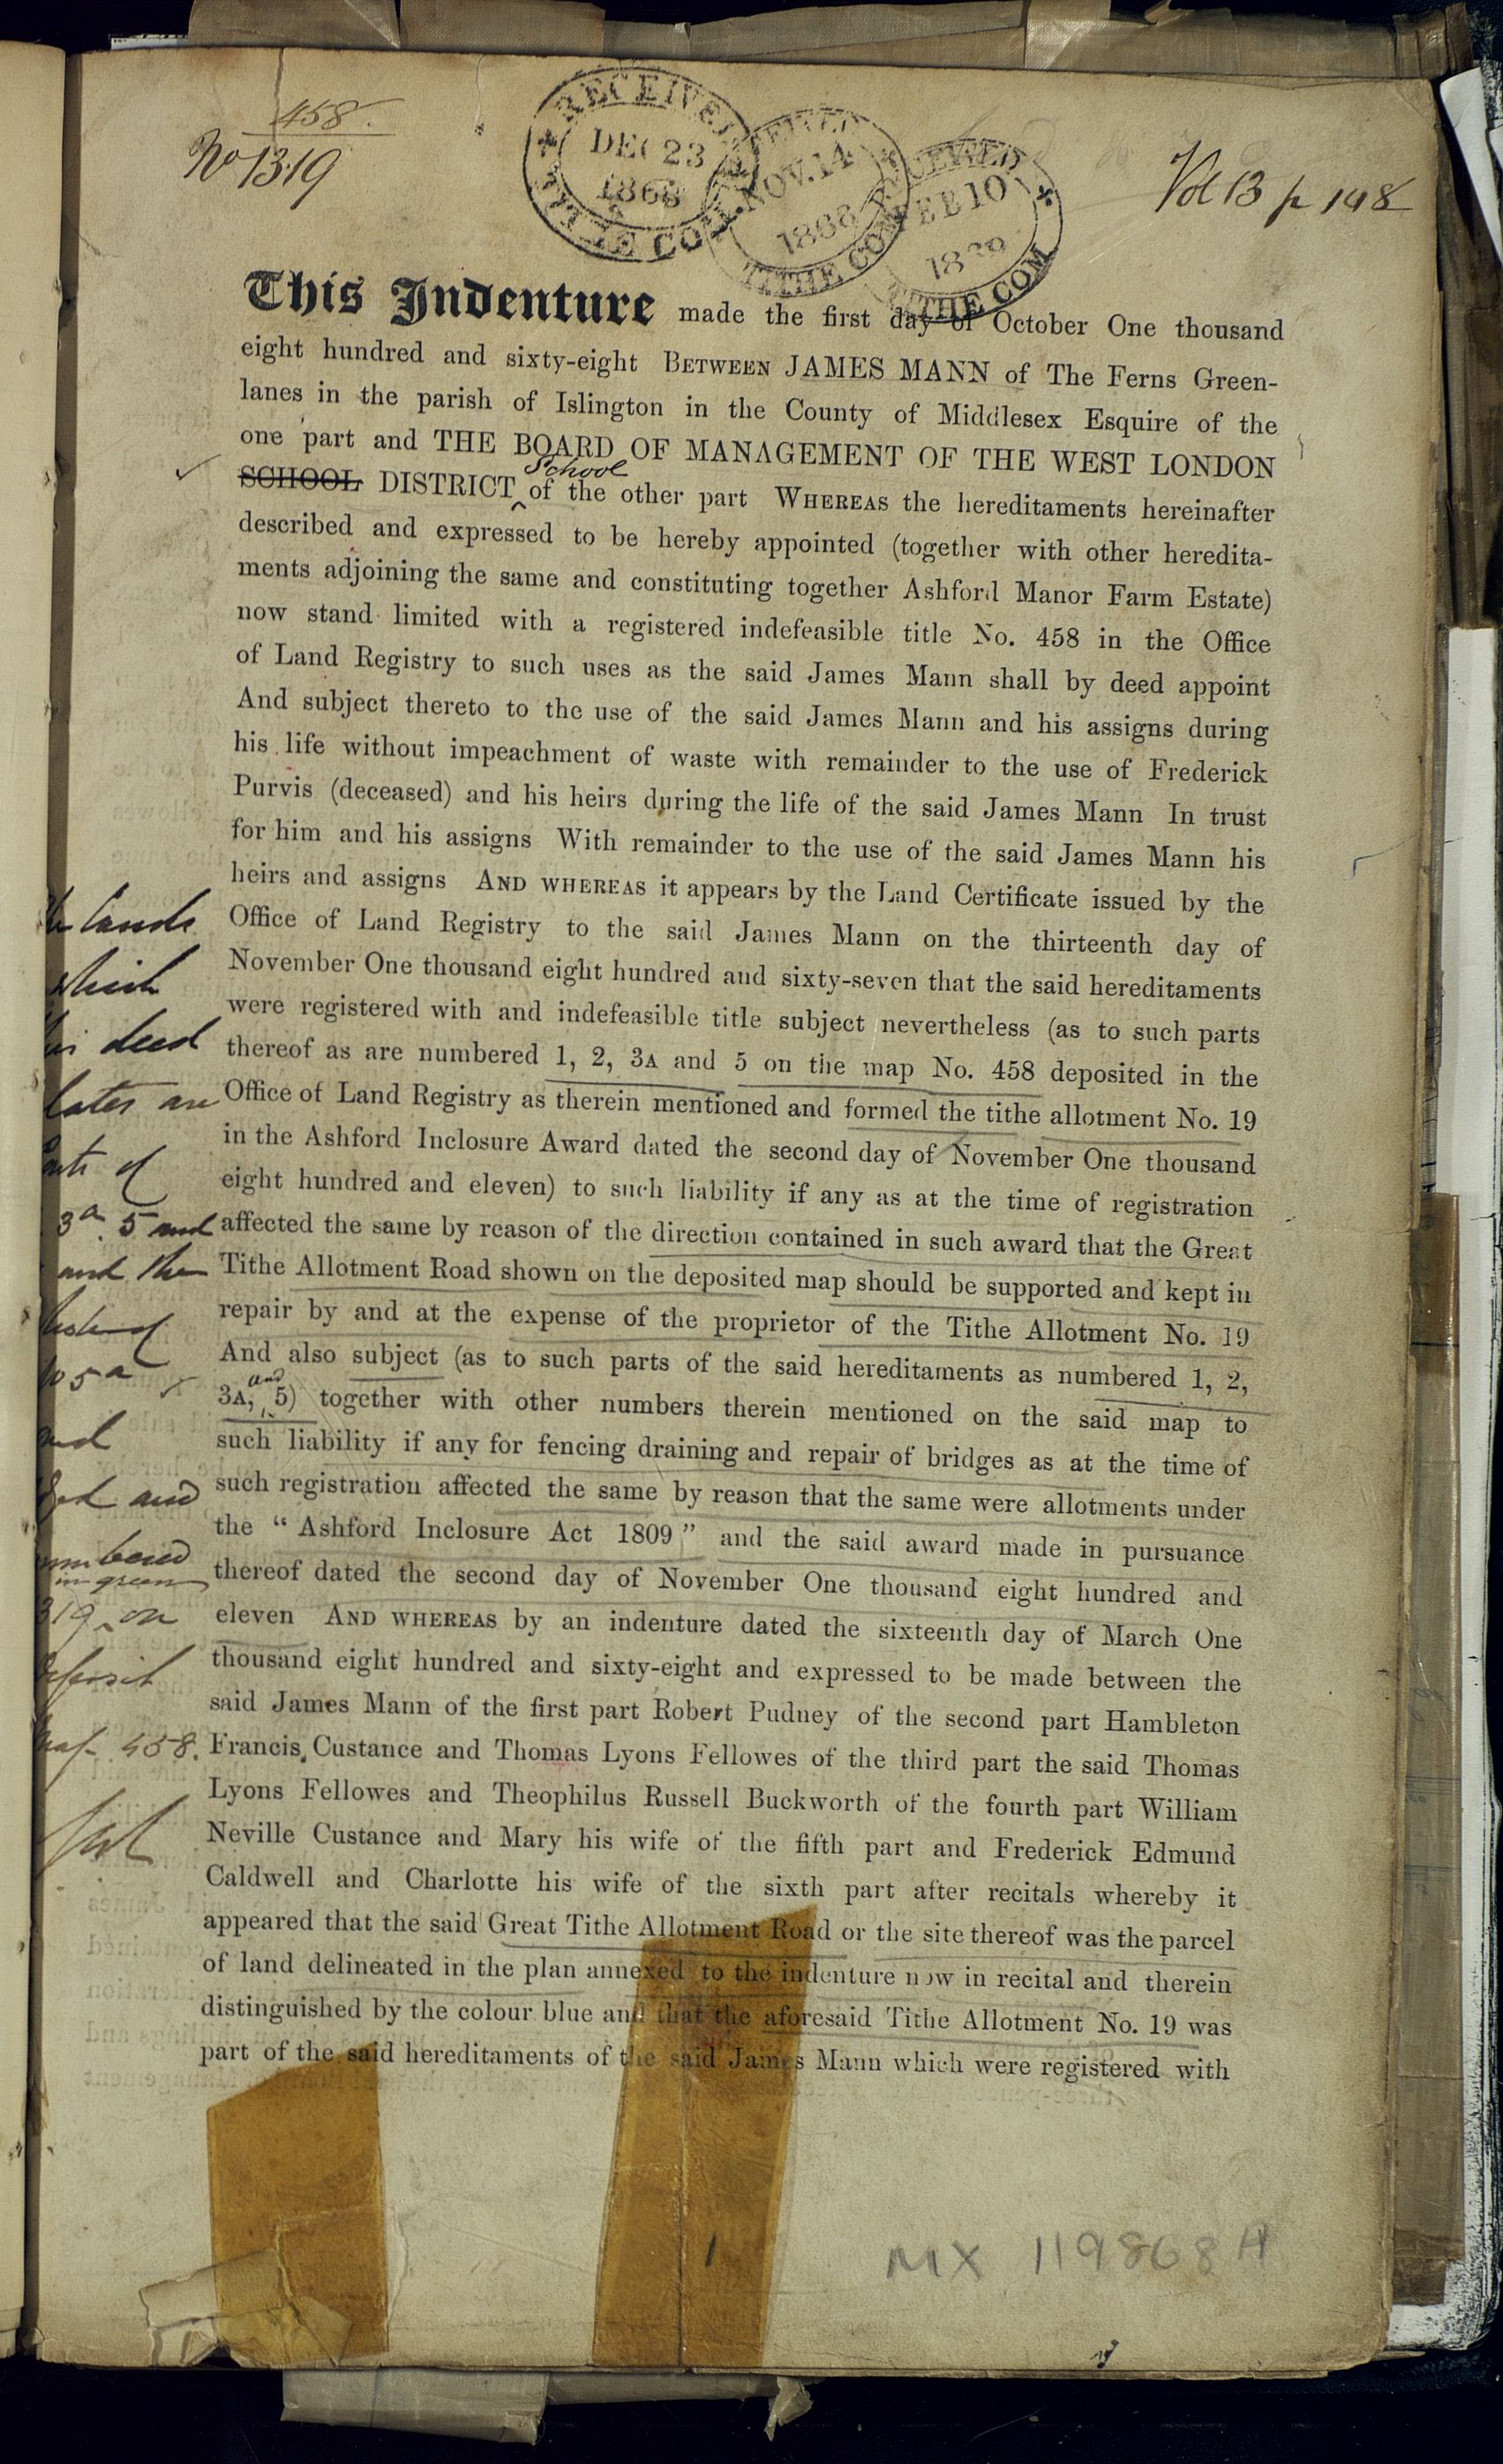 458.
No 1319
RECEIVED
DEC 23
1868
TITHE COM
NOV. 14
1868
TITHE COM
RECEIVED
FEB 10
THE COM
Vol 13 p 148
This Indenture made the first day of October One thousand
eight hundred and sixty-eight BETWEEN JAMES MANN of The Ferns Green-
lanes in the parish of Islington in the County of Middlesex Esquire of the
one part and THE BOARD OF MANAGEMENT OF THE WEST LONDON
School
SCHOOL DISTRICT of the other part WHEREAS the hereditaments hereinafter
described and expressed to be hereby appointed (together with other heredita-
ments adjoining the same and constituting together Ashford Manor Farm Estate)
now stand limited with a registered indefeasible title No. 458 in the Office
of Land Registry to such uses as the said James Mann shall by deed appoint
And subject thereto to the use of the said James Mann and his assigns during
his life without impeachment of waste with remainder to the use of Frederick
Purvis (deceased) and his heirs during the life of the said James Mann In trust
for him and his assigns With remainder to the use of the said James Mann his
heirs and assigns AND WHEREAS it appears by the Land Certificate issued by the
Office of Land Registry to the said James Mann on the thirteenth day of
November One thousand eight hundred and sixty-seven that the said hereditaments
were registered with and indefeasible title subject nevertheless (as to such parts
thereof as are numbered 1, 2, 3A and 5 on the map No. 458 deposited in the
Office of Land Registry as therein mentioned and formed the tithe allotment No. 19
in the Ashford Inclosure Award dated the second day of November One thousand
eight hundred and eleven) to such liability if any as at the time of registration
affected the same by reason of the direction contained in such award that the Great
Tithe Allotment Road shown on the deposited map should be supported and kept in
repair by and at the expense of the proprietor of the Tithe Allotment No. 19
And also subject (as to such parts of the said hereditaments as numbered 1, 2,
and
3A, 5) together with other numbers therein mentioned on the said map to
such liability if any for fencing draining and repair of bridges as at the time of
such registration affected the same by reason that the same were allotments under
the “ Ashford Inclosure Act 1809 ” and the said award made in pursuance
thereof dated the second day of November One thousand eight hundred and
eleven AND WHEREAS by an indenture dated the sixteenth day of March One
thousand eight hundred and sixty-eight and expressed to be made between the
said James Mann of the first part Robert Pudney of the second part Hambleton
Francis Custance and Thomas Lyons Fellowes of the third part the said Thomas
Lyons Fellowes and Theophilus Russell Buckworth of the fourth part William
Neville Custance and Mary his wife of the fifth part and Frederick Edmund
Caldwell and Charlotte his wife of the sixth part after recitals whereby it
appeared that the said Great Tithe Allotment Road or the site thereof was the parcel
of land delineated in the plan annexed to the indenture now in recital and therein
distinguished by the colour blue and that the aforesaid Tithe Allotment No. 19 was
part of the said hereditaments of the said James Mann which were registered with
lands
which
deed
are
of
3a. 5 and
and the
5a
and
and
numbered
in green
on
deposit
458.
1
MX 119868 H